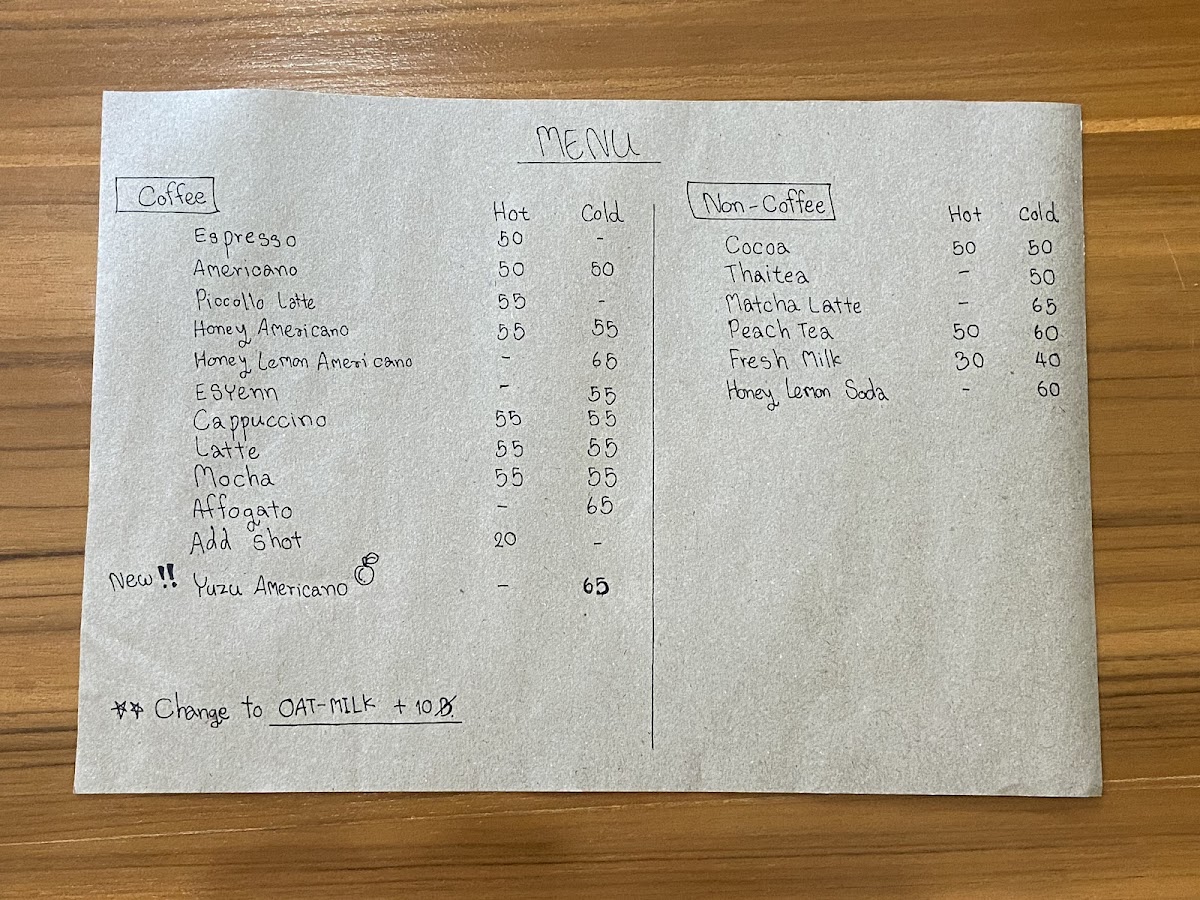 MENU
Coffee
Hot Cold
Espresso 50 -
Americano 50 50
Piccollo Latte 55 -
Honey Americano 55 55
Honey Lemon Americano - 65
ESYenn - 55
Cappuccino 55 55
Latte 55 55
Mocha 55 55
Affogato - 65
Add shot 20 -
New!! Yuzu Americano - 65
Change to OAT-MILK + 10฿.
Non-Coffee
Hot Cold
Cocoa 50 50
Thaitea - 50
Matcha Latte - 65
Peach Tea 50 60
Fresh Milk 30 40
Honey Lemon Soda - 60